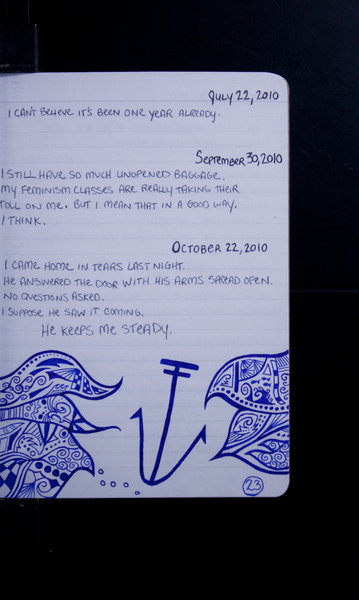 July 22, 2010
I can't believe it's been one year already.
September 30, 2010
I still have so much unopened baggage.
My feminism classes are really taking their
toll on me. But I mean that in a good way.
I think.
October 22, 2010
I came home in tears last night.
He answered the door with his arms spread open.
No questions asked.
I suppose he saw it coming.
He keeps me steady.
23